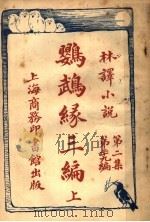 林譯小說
第二集
第九編
鸚鵡緣三編
上
上海商務印書館出版